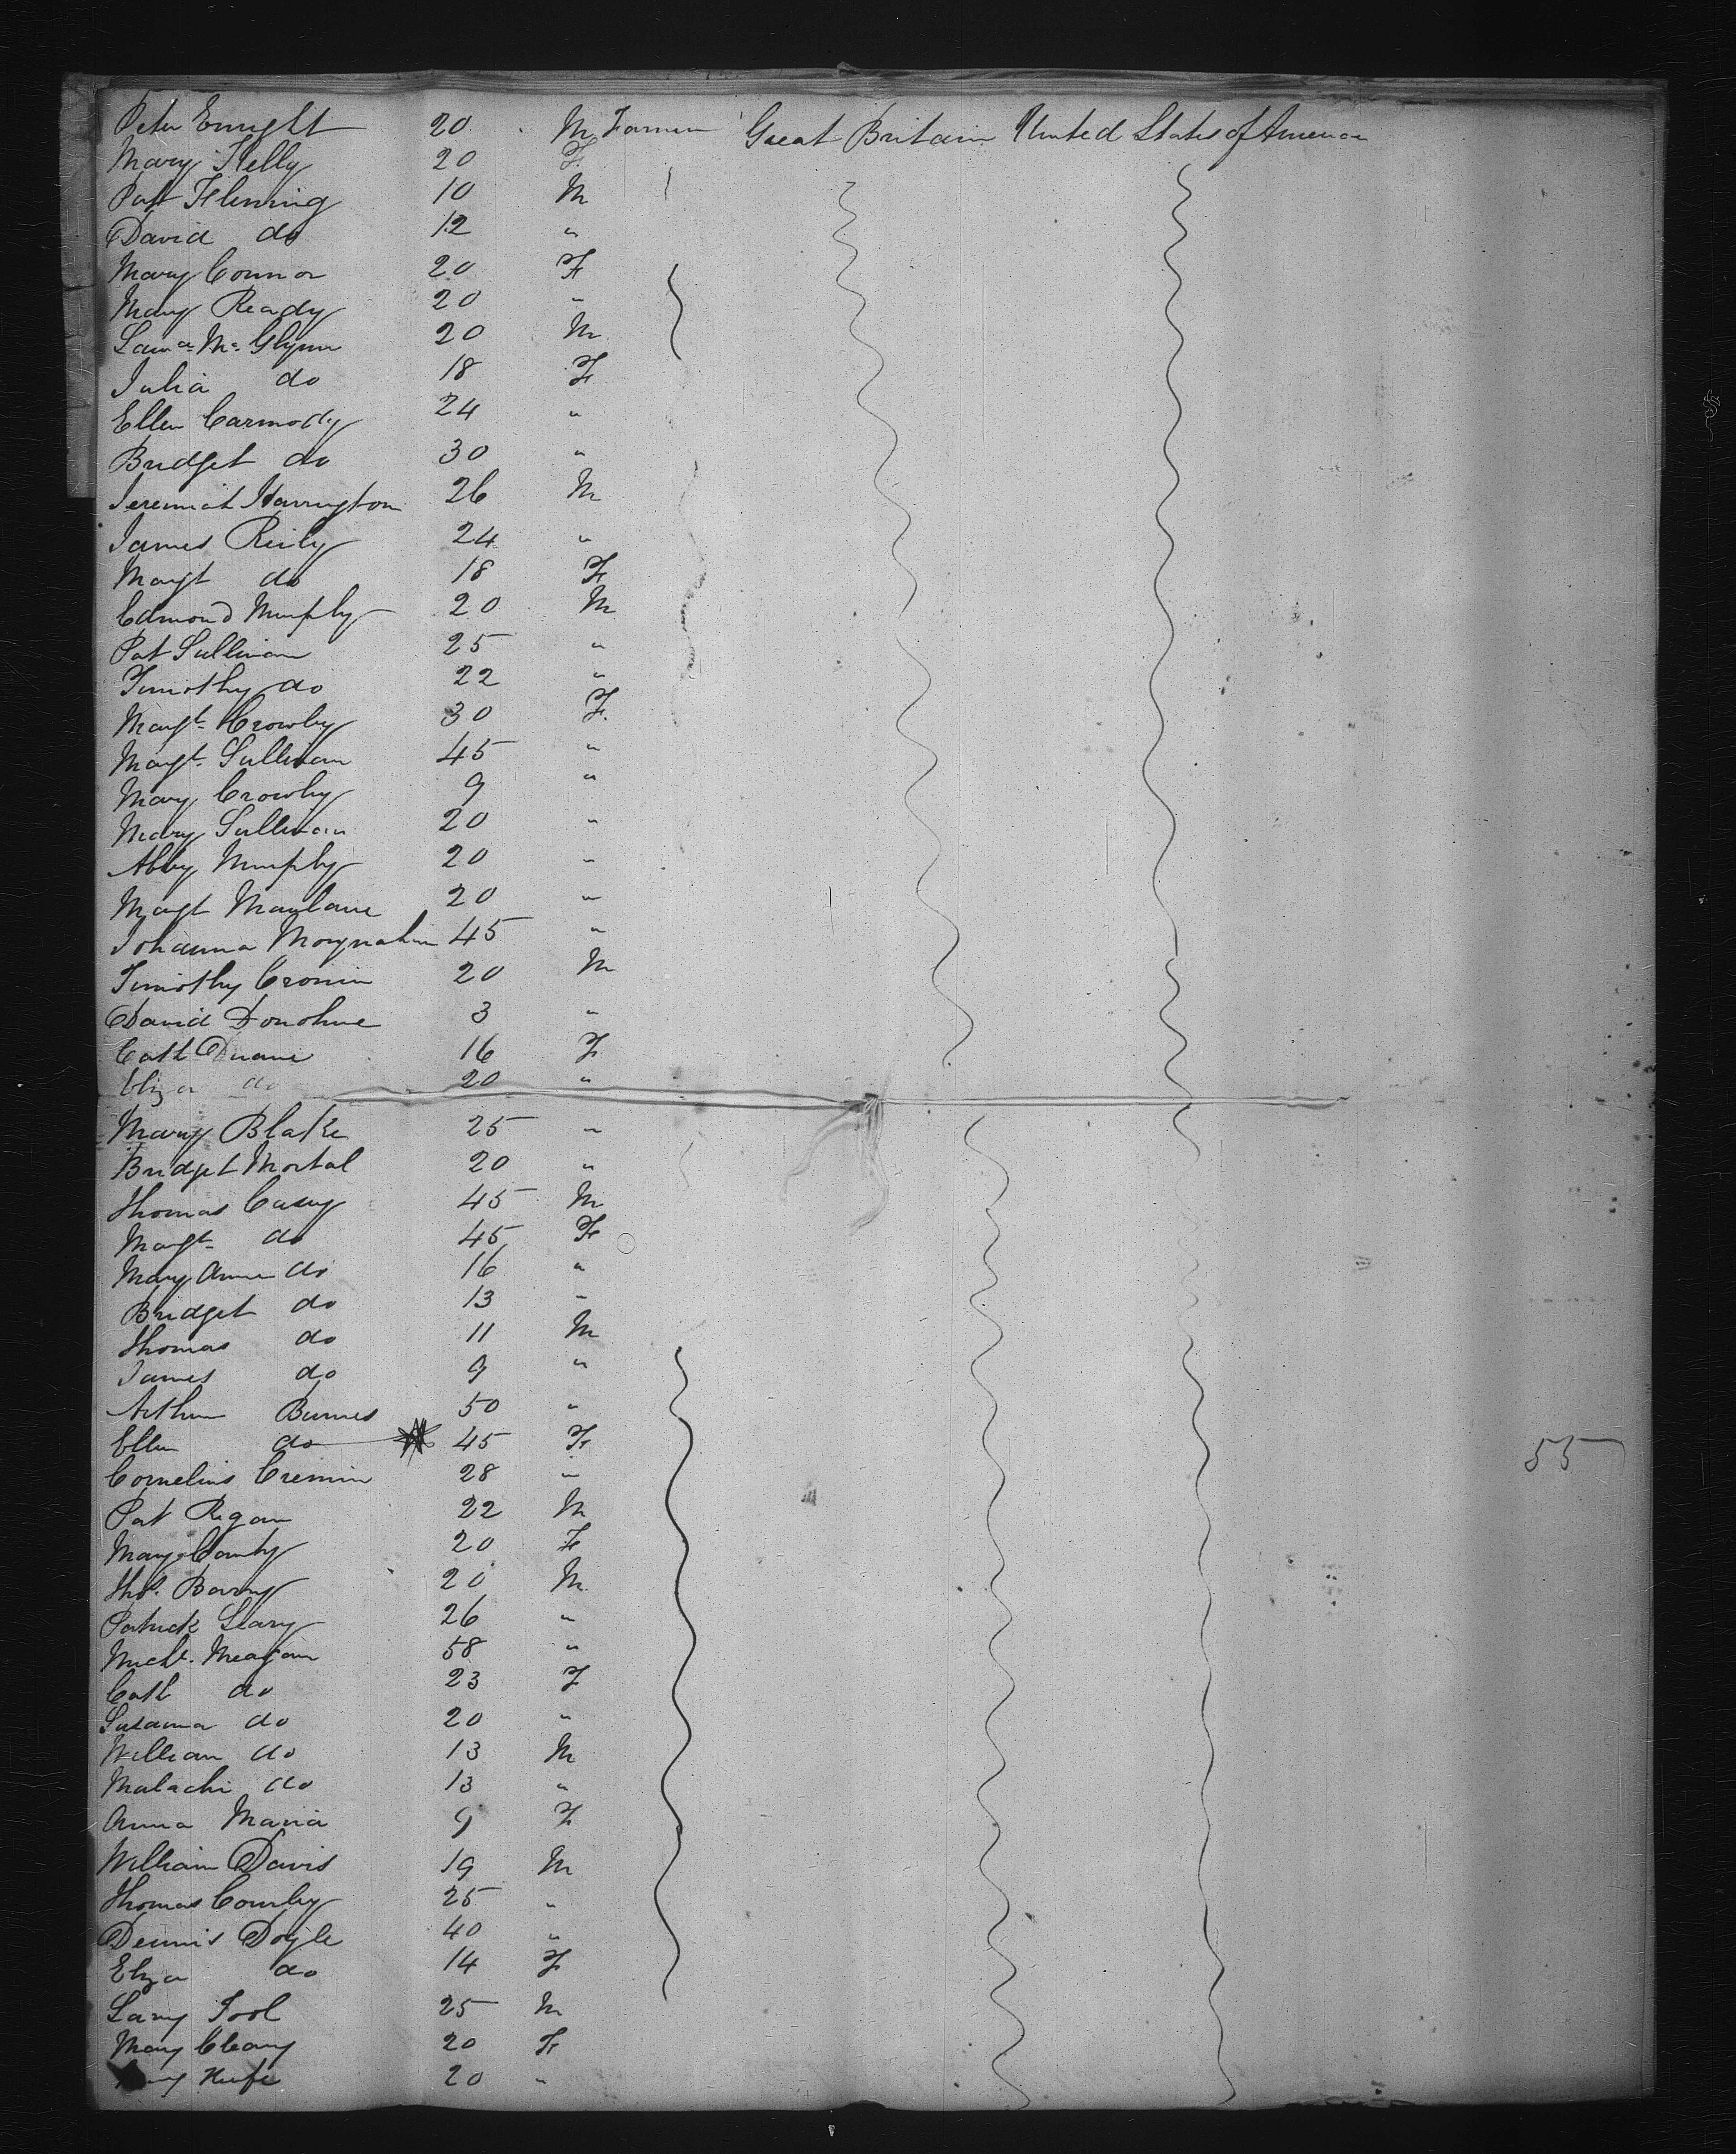 Peter Enright 20 M Farmer Great Britain United States of America
Mary Kelly 20 F
Pat Fleming 10 M
David do 12 "
Mary Connor 20 F
Mary Ready 20 "
Lawce Mc Glynn 20 M
Julia do 18 F
Ellen Carmody 24 "
Bridget do 30 "
Jeremiah Harrington 26 M
James Reily 24 "
Margt do 18 F
Edmond Murphy 20 M
Pat Sullivan 25 "
Timothy do 22 "
Margt Crowley 30 F
Margt Sullivan 45 "
Mary Crowley 9 "
Mary Sullivan 20 "
Abby Murphy 20 "
Margt 20 "
Johanna Moynahan 45 "
Timothy Cronin 20 M
David Donohue 3 "
Cath Duane 16 F
Eliza do 20 "
Mary Blake 25 "
Bridget Mortal 20 "
Thomas Casey 45 M
Margt do 45 F
Mary Anne do 16 "
Bridget do 13 "
Thomas do 11 M
James do 9 "
Arthur Burnes 50 "
Ellen do 45 F 55
Cornelius Cremin 28 "
Pat Regan 22 M
Mary 20 F
Thos. Barry 20 M
Patrick Leary 26 "
Michl. Meagan 58 "
Cath do 23 F
Susanna do 20 "
William do 13 M
Malachi do 13 "
Anna Maria 9 F
William Davis 19 M
Thomas 25 "
Dennis Doyle 40 "
Eliza do 14 F
Larry Tool 25 M
Mary Cleary 20 F
Keefe 20 "